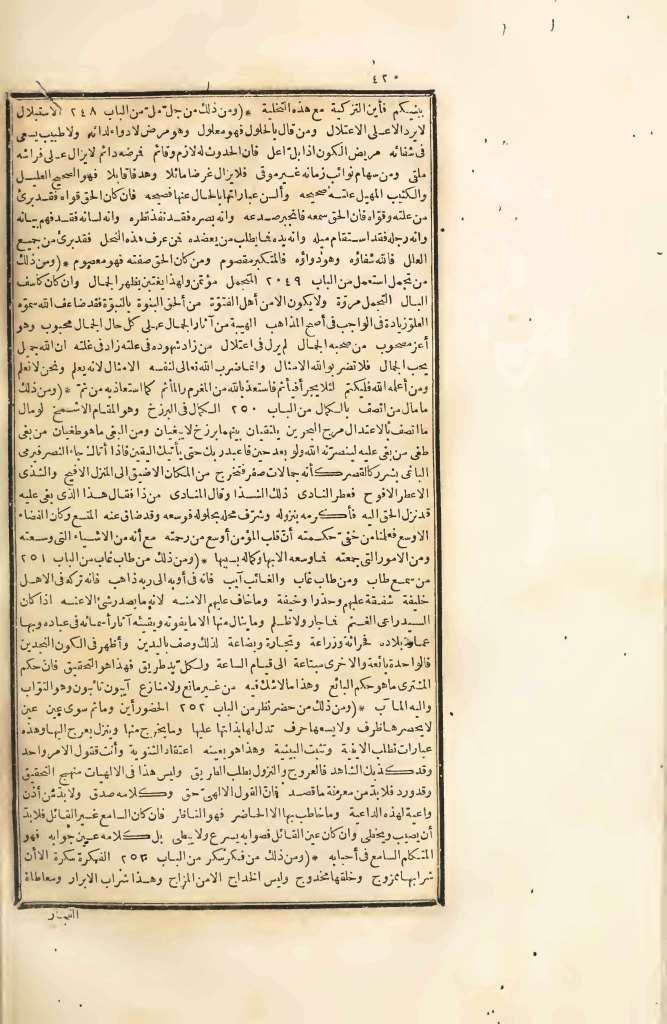 ٤٢٠
بينكم فأين التزكية مع هذه التخلية *(ومن ذلك من جل مل من الباب ٢٤٨ الاستقبال
لا يرد الاعلى الاعتلال ومن قال بالحلول فهو معلول وهو مرض لا دواء لدائه ولا طبيب يسعى
فى شفائه مريض الكون اذا بل اعل فان الحدوث له لازم وقائم فرضه دائم لا يزال على فراشه
ملقى ومن سهام نوائب زمانه غير موقى فلا يزال غرضا مائلا وهدفا قابلا فهو الصحيح العليل
والكثيب المهيل علته صحيحه وألسن عباراتها بالحال عنها فصيحه فان كان الحق قواه فقد برئ
من علته وقواه فان الحق سمعه فانجبر صدعه وانه بصره فقد نفذ نظره وانه لسانه فقد فهم بيانه
وانه رجله فقد استقام ميله وانه يده فما يطلب من يعضده فمن عرف هذه النحل فقد برئ من جميع
العلل فالله شفاؤه وهو دواؤه فالمتكبر مقصوم ومن كان الحق صفته فهو معصوم *(ومن ذلك
من تجمل استعمل من الباب ٢٠٤٩ المتجمل مؤتمن ولهذا يفتتن بظهر الجمال وان كان كاسف
البال التجمل مروّة ولا يكون الا من أهل الفتوّة من ألحق البنوة بالنبوّة فقد ضاعف الله سموّه
العلوّ زيادة فى الواجب فى أصح المذاهب الهيبة من آثار الجمال على كل حال الجمال محبوب وهو
أعز مصحوب من صحبه الجمال لم يزل فى اعتلال من زاد شهوده فى علته زاد فى غلته ان الله جميل
يحب الجمال فلا تضربوا لله الامثال وانما ضرب الله تعالى لنفسه الامثال لانه يعلم ونحن لا نعلم
ومن أعلمه الله فليكتم لئلا يجرأ فيأثم فاستعذ بالله من المغرم والمأثم كما استعاذ به من تم *(ومن ذلك
ما مال من اتصف بالكمال من الباب ٢٥٠ الكمال فى البرزخ وهو المقام الاشمخ لو مال
ما اتصف بالاعتدال مرج البحرين يلتقيان بينهما برزخ لا يبغيان ومن البقى ما هو طغيان من بغى
طغى من بغى عليه لينصرنه الله ولو بعد حين فاعبد ربك حتى يأتيك اليقين فاذا أتاك جاء النصر فيرمى
الباغى بشرر كالقصر كأنه جمالات صفر فتخرج من المكان الاضيق الى المنزل الافيح والشذى
الاعطر الافوح فعطر النادى ذلك الشذا وقال المنادى من ذا فقال هذا الذى بغى عليه
قد نزل الحق اليه فأكرمه بنزوله وشرّف محله بحلوله فوسعه وقد ضاق عنه المتسع وكان الفضاء
الاوسع فعلمنا من خفىّ حكمته أن قلب المؤمن أوسع من رحمته مع أنه من الاشياء التى وسعته
ومن الامور التى جمعته فما وسعه الا بها وكماله بسببها *(ومن ذلك من طاب غاب من الباب ٢٥١
من سمع طاب ومن طاب غاب والغائب آيب فانه فى أوبه الى ربه ذاهب فانه تركه فى الاهل
خليفة شفقة عليهم وحذرا وخيفة وما خاف عليهم الا منه لانه ما يصدر شئ الا عنه اذا كان
السيد راعى الغنم فما جار ولا ظلم وما ينال منها الا ما يفوته وبقيته آثار أسمائه فى عباده وبها
عمارة بلاده فحراثة وزراعة وتجارة وبضاعة لذلك وصف باليدين وأظهر فى الكون النجدين
فالواحدة بائعة والاخرى مبتاعة الى قيام الساعة ولكل يد طريق فهذا هو التحقيق فان حكم
المشترى ما هو حكم البائع وهذا مالا شك فيه من غير مانع ولا منازع آيبون تائبون وهو التواب
واليه المآب *(ومن ذلك من حضر نظر من الباب ٢٥٢ الحضور أين وما ثم سوى عين عين
لا يحصرها ظرف ولا يسعها حرف تدل لها بذاتها عليها وما يخرج منها وينزل يعرج اليها وهذه
عبارات تطلب الاينية وتثبت البينية وهذا هو بعينه اعتقاد الثنوية وأنت فتقول الامر واحد
وقد كذبك الشاهد فالعروج والنزول يطلب الطريق وليس هذا فى الالهيات منهج التحقيق
وقد ورد فلا بدّ من معرفة ما قصد فان القول الالهىّ حق وكلامه صدق ولا بدّ من أذن
واعية لهذه الداعية وما خاطب بها الا الحاضر فهو الناظر فان كان السامع غير القائل فلا بدّ
أن يصيب ويخطى وان كان عين القائل فصوابه يسرع ولا يبطى بل كلامه عين جوابه فهو
المتكلم السامع فى أحبابه *(ومن ذلك من فكر سكر من الباب ٢٥٣ الفكرة سكرة الا أن
شرابها ممزوج وخلقها مخدوج وليس الخداج الا من المزاج وهذا شراب الابرار ومعاطاة